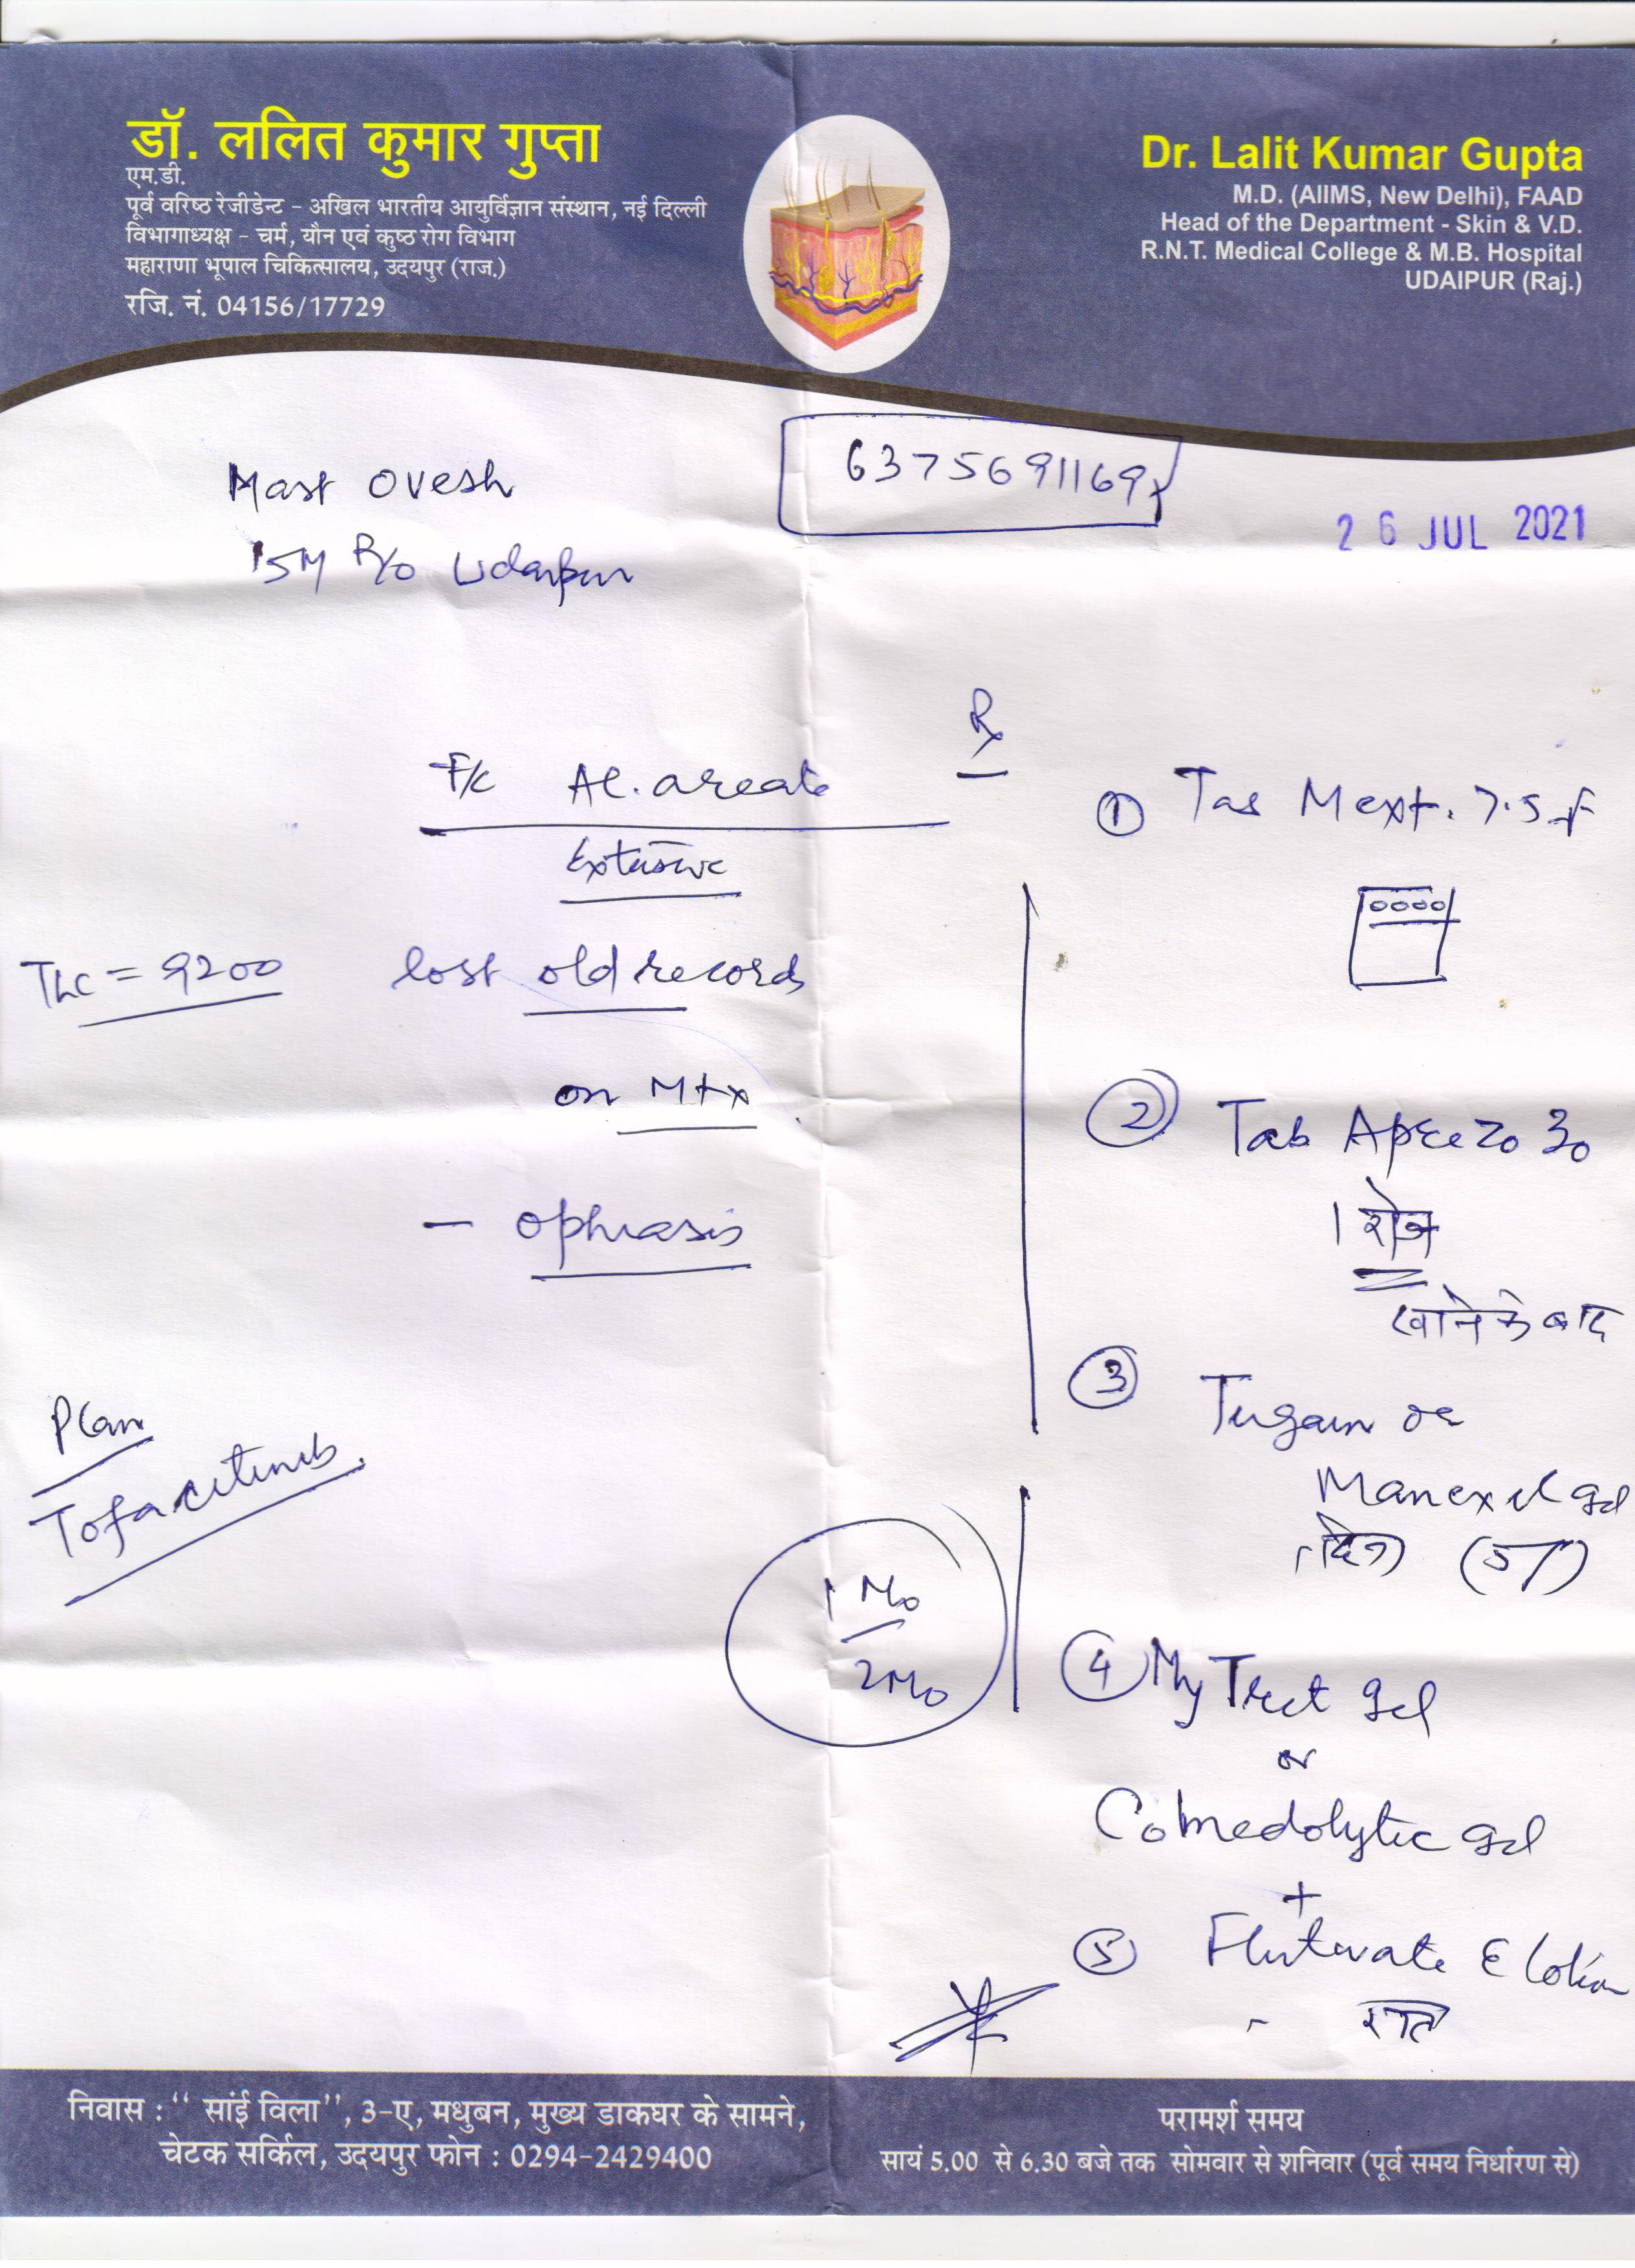 डॉ. ललित कुमार गुप्ता
एम.डी.
पूर्व वरिष्ठ रेजीडेन्ट - अखिल भारतीय आयुर्विज्ञान संस्थान, नई दिल्ली
विभागाध्यक्ष - चर्म, यौन एवं कुष्ठ रोग विभाग
महाराणा भूपाल चिकित्सालय, उदयपुर (राज.)
रजि. नं. 04156/17729
Dr. Lalit Kumar Gupta
M.D. (AIIMS, New Delhi), FAAD
Head of the Department - Skin & V.D.
R.N.T. Medical College & M.B. Hospital
UDAIPUR (Raj.)
6375691169
Mast Ovesh
26 JUL 2021
15M R/o Udaipur
F/c Al. areata
Extensive
TLC = 9200
lost old records
on Mtx
- Ophiasis
Plan
Tofacitinib
1 Mo
2 Mo
Rx
① Tab Mext. 7.5
② Tab Aprezo 30
1 रोज
खाने के बाद
③ Tugain or
Manexil gel
दिन (5%)
④ My Tret gel
or
Comedolytic gel
+
⑤ Flutivate E lotion
- रात
निवास : "सांई विला", 3-ए, मधुबन, मुख्य डाकघर के सामने,
चेटक सर्किल, उदयपुर फोन : 0294-2429400
परामर्श समय
सायं 5.00 से 6.30 बजे तक सोमवार से शनिवार (पूर्व समय निर्धारण से)